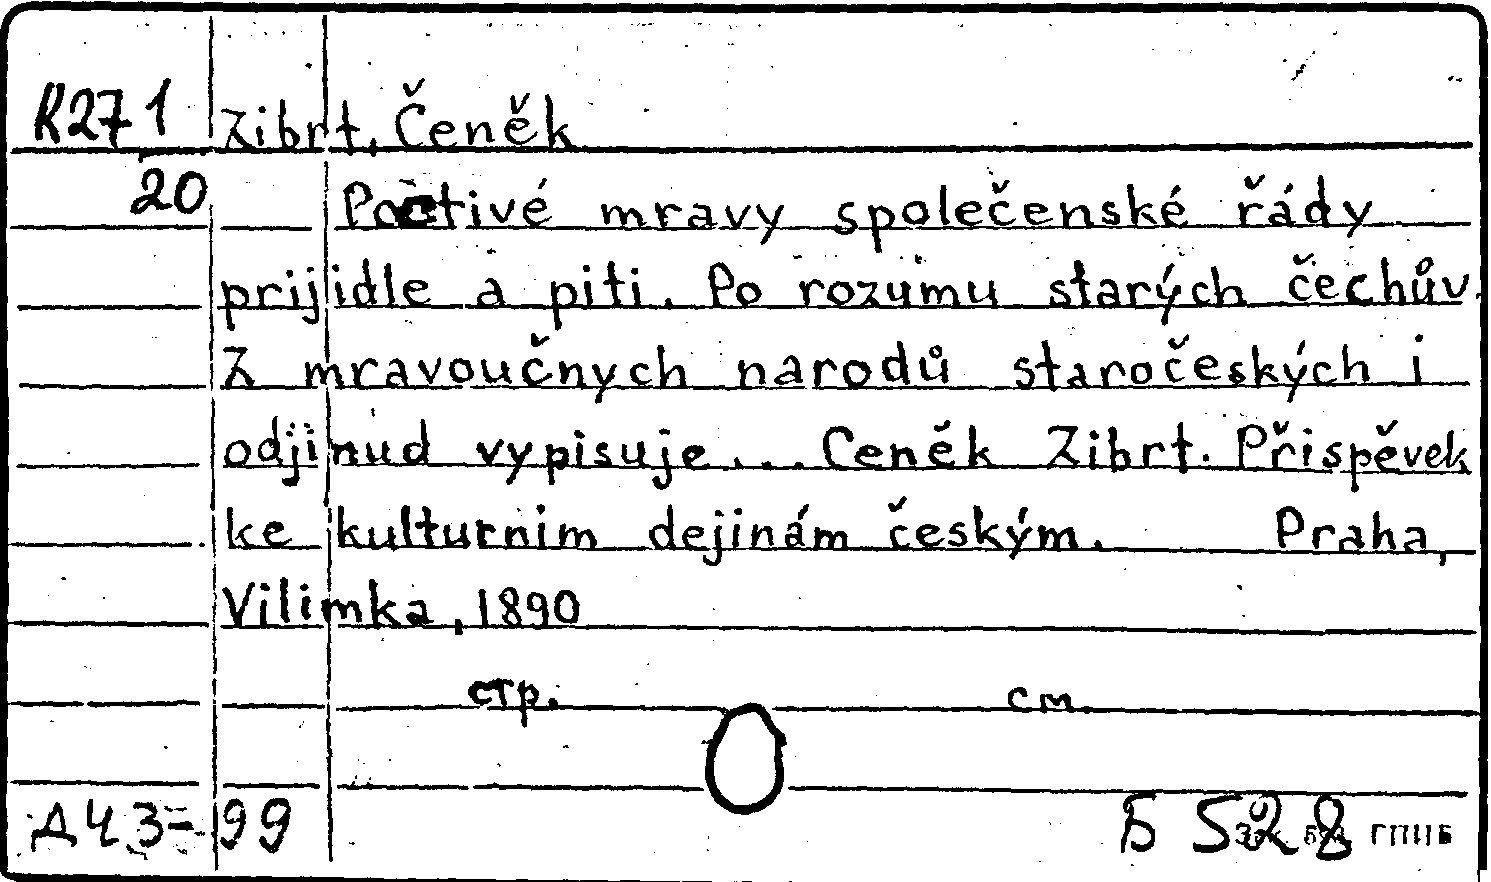 К271 Zibrt, Čeněk
20 Poctivé mravy společenské řády
prijidle a piti. Po rozumu starých čechův
Z mravoučnych narodů staročeských i
odjinud vypisuje... Ceněk Zibrt. Přispěvek
ke kulturnim dejinám českým. Praha,
Vilimka, 1890
стр. см.
Д43-99 Б 528 ГППБ